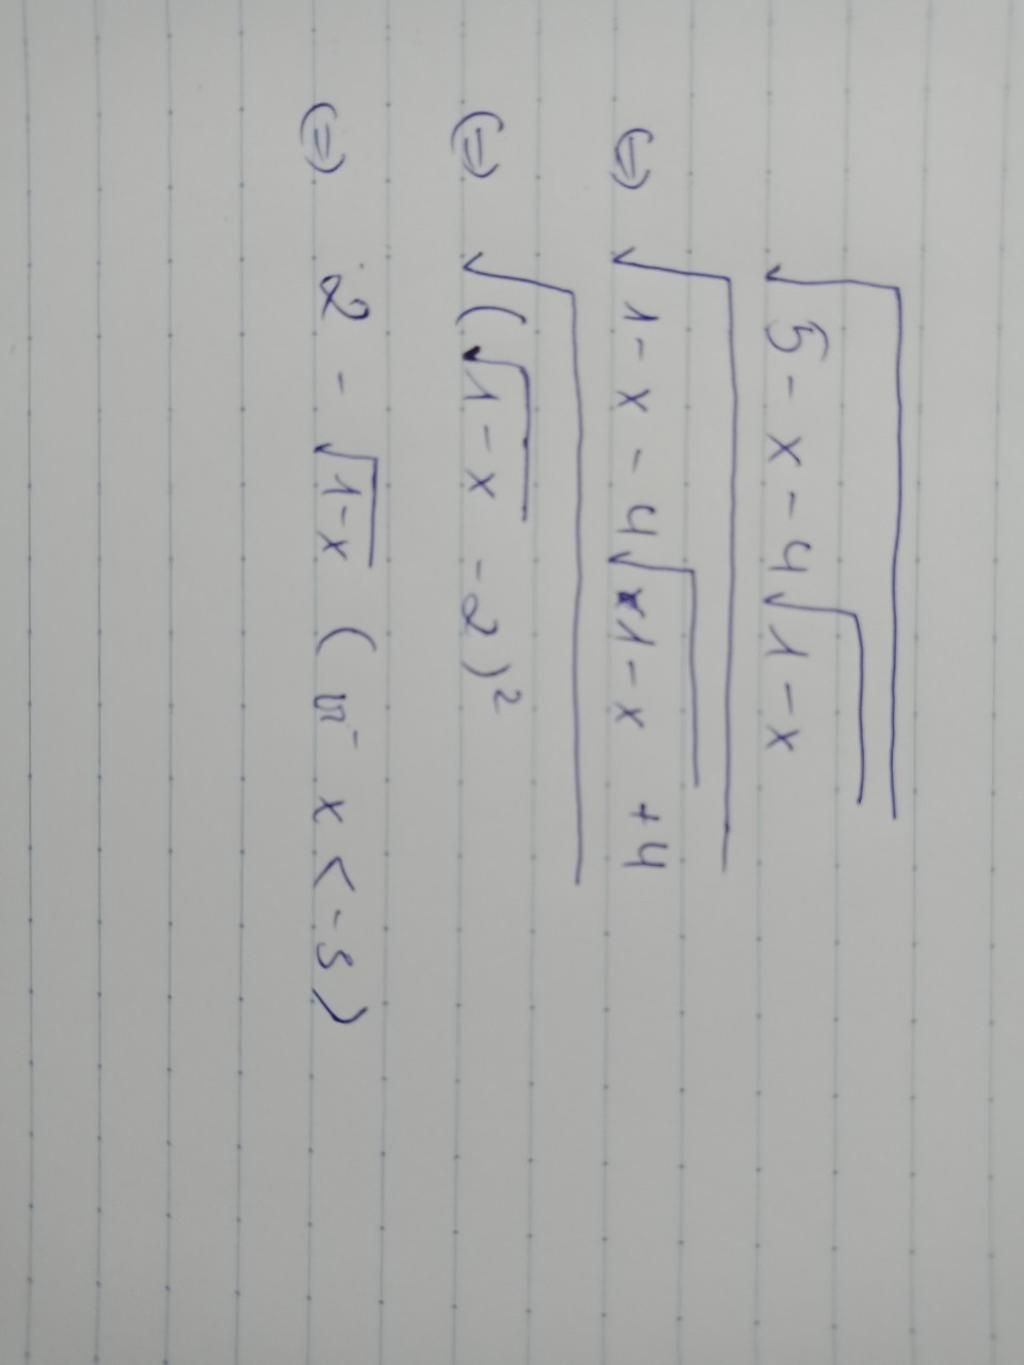 √(5 - x - 4√(1 - x))
(=) √(1 - x - 4√(1 - x) + 4)
(=) √((√(1 - x) - 2)²)
(=) 2 - √(1 - x) (vì x < -3)